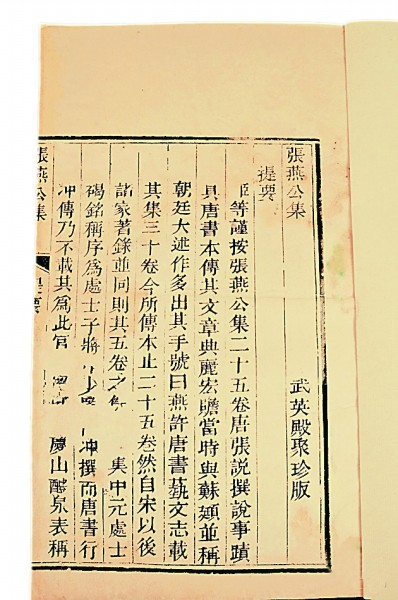 張燕公集
武英殿聚珍版
提要
臣等謹按張燕公集二十五卷唐張說撰說事蹟
具唐書本傳其文章典麗宏贍當時與蘇頲並稱
朝廷大述作多出其手號曰燕許唐書藝文志載
其集三十卷今所傳本止二十五卷然自宋以後
諸家著錄並同則其五卷之 集中元處士
碣銘稱序為處士子將 沖撰而唐書行
沖傳乃不載其為此官 慶山醴泉表稱
張燕公集
提要